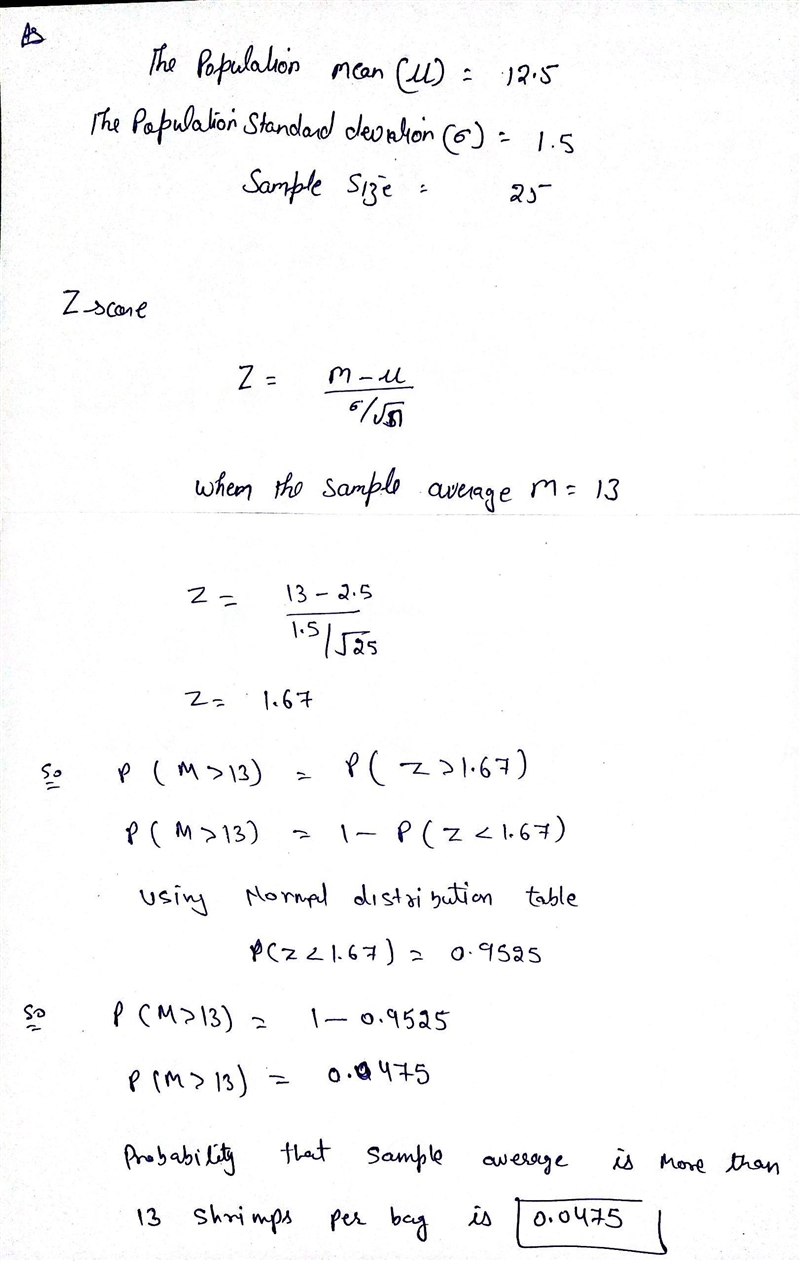 The Population mean (μ) = 12.5
The Population Standard deviation (σ) = 1.5
Sample Size = 25
Z score
Z = m - μ / σ/√n
when the sample average m = 13
Z = 13 - 2.5 / 1.5/√25
Z = 1.67
So P(M > 13) = P(Z > 1.67)
P(M > 13) = 1 - P(Z < 1.67)
using Normal distribution table
P(Z < 1.67) = 0.9525
So P(M > 13) = 1 - 0.9525
P(M > 13) = 0.0475
Probability that sample average is more than
13 shrimps per bag is 0.0475